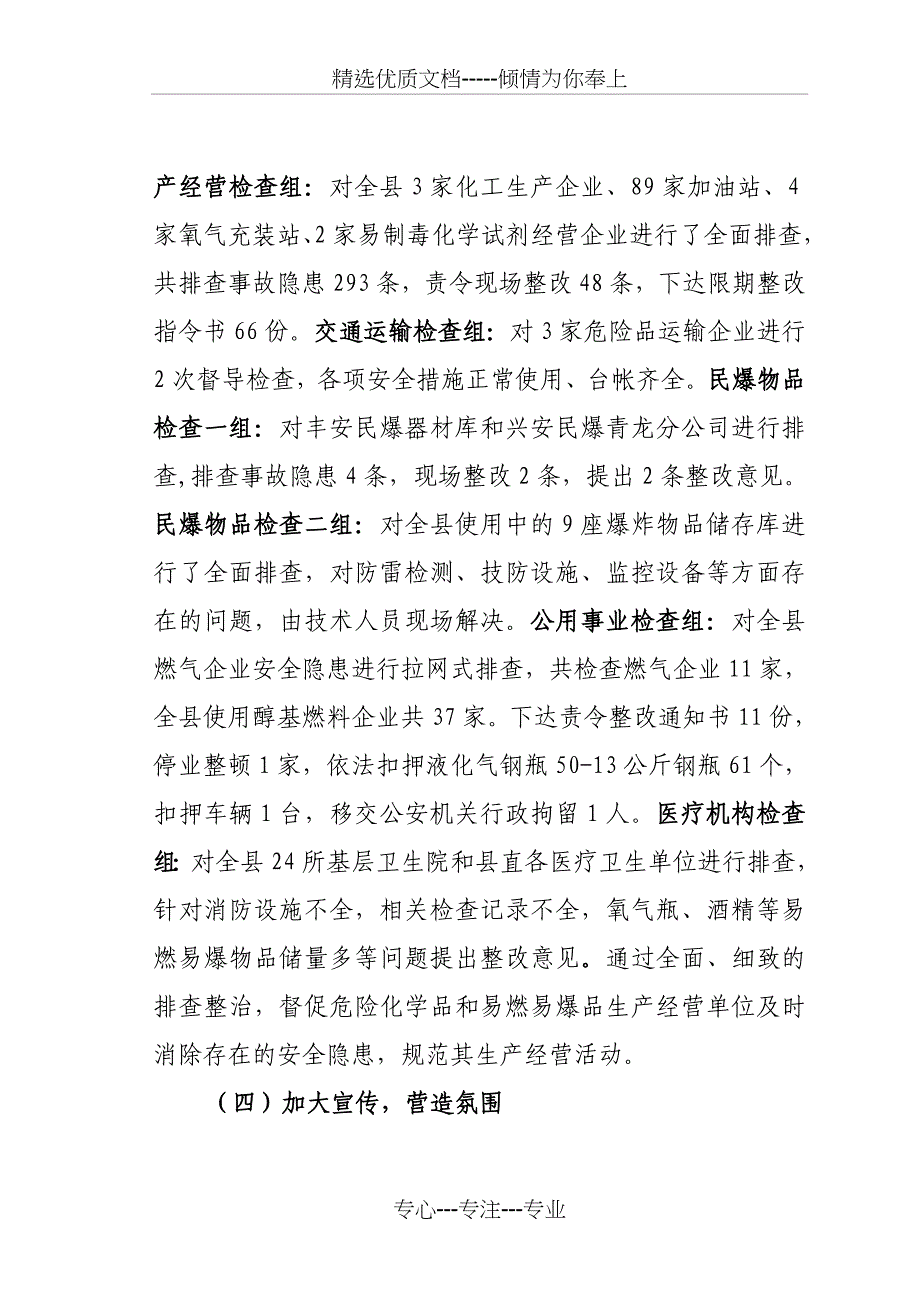 精选优质文档-----倾情为你奉上
产经营检查组：对全县 3 家化工生产企业、89 家加油站、4
家氧气充装站、2 家易制毒化学试剂经营企业进行了全面排查，
共排查事故隐患 293 条，责令现场整改 48 条，下达限期整改
指令书 66 份。交通运输检查组：对 3 家危险品运输企业进行
2 次督导检查，各项安全措施正常使用、台帐齐全。民爆物品
检查一组：对丰安民爆器材库和兴安民爆青龙分公司进行排
查,排查事故隐患 4 条，现场整改 2 条，提出 2 条整改意见。
民爆物品检查二组：对全县使用中的 9 座爆炸物品储存库进
行了全面排查，对防雷检测、技防设施、监控设备等方面存
在的问题，由技术人员现场解决。公用事业检查组：对全县
燃气企业安全隐患进行拉网式排查，共检查燃气企业 11 家，
全县使用醇基燃料企业共 37 家。下达责令整改通知书 11 份，
停业整顿 1 家，依法扣押液化气钢瓶 50-13 公斤钢瓶 61 个，
扣押车辆 1 台，移交公安机关行政拘留 1 人。医疗机构检查
组：对全县 24 所基层卫生院和县直各医疗卫生单位进行排查，
针对消防设施不全，相关检查记录不全，氧气瓶、酒精等易
燃易爆物品储量多等问题提出整改意见。通过全面、细致的
排查整治，督促危险化学品和易燃易爆品生产经营单位及时
消除存在的安全隐患，规范其生产经营活动。
（四）加大宣传，营造氛围
专心---专注---专业